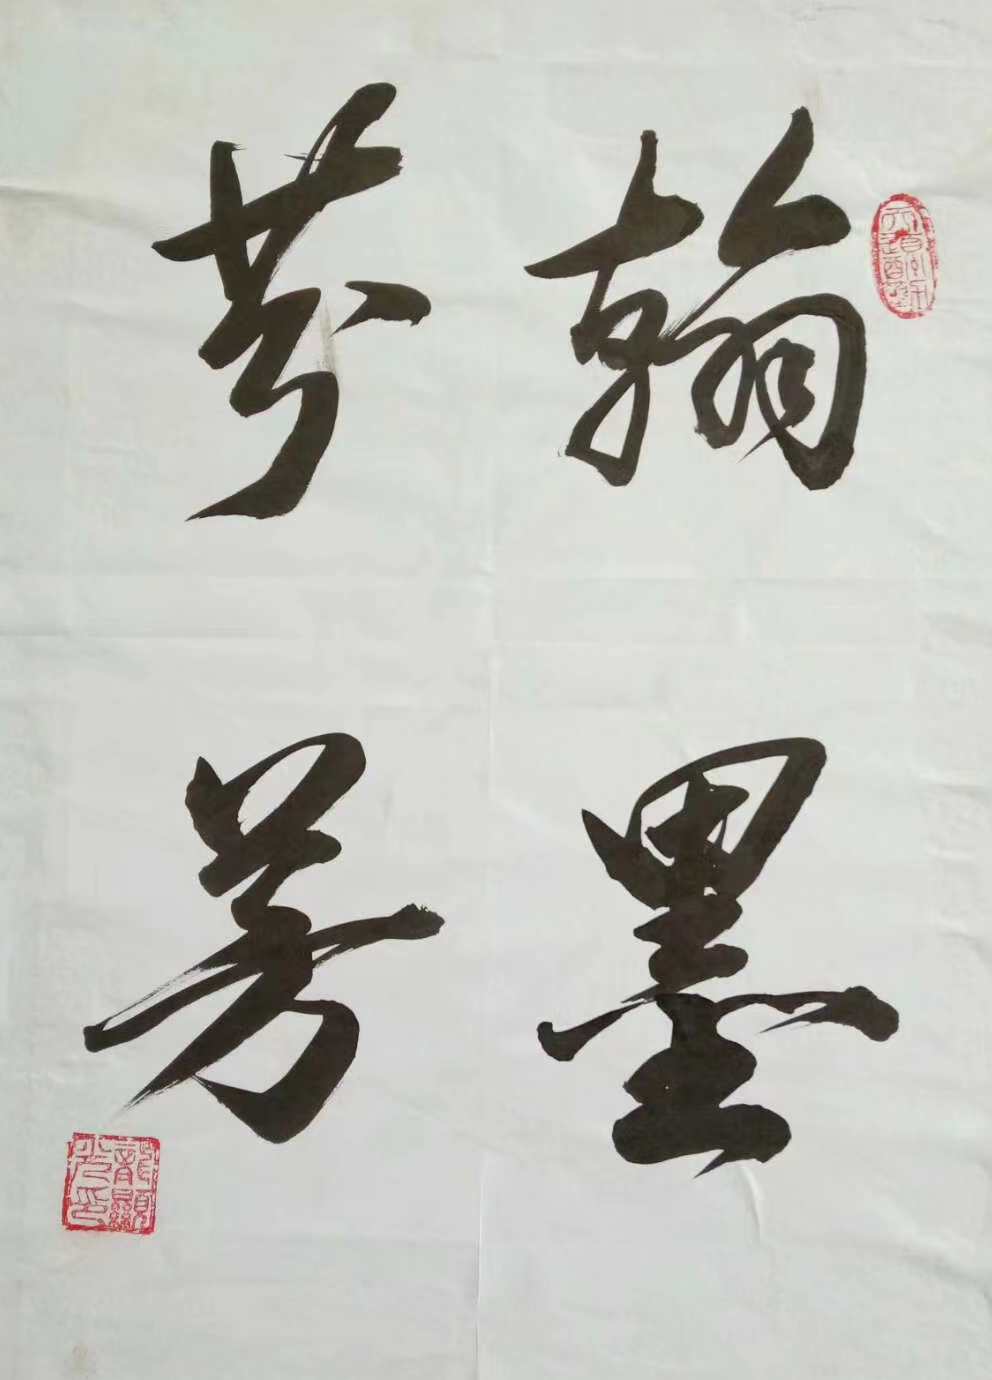 翰墨
芬芳